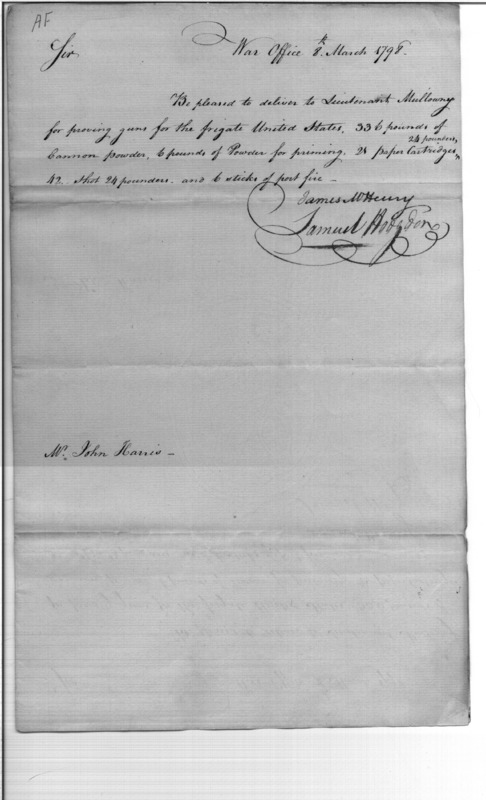 AF
Sir
War Office 8th March 1798.
Be pleased to deliver to Lieutenant Mullowny
for proving guns for the frigate United States, 336 pounds of
Cannon powder, 6 pounds of Powder for priming, 28 paper Cartridges 24 pounders,
42 shot 24 pounders. and 6 sticks of port fire
James McHenry
Samuel Hodgdon
Mr. John Harris